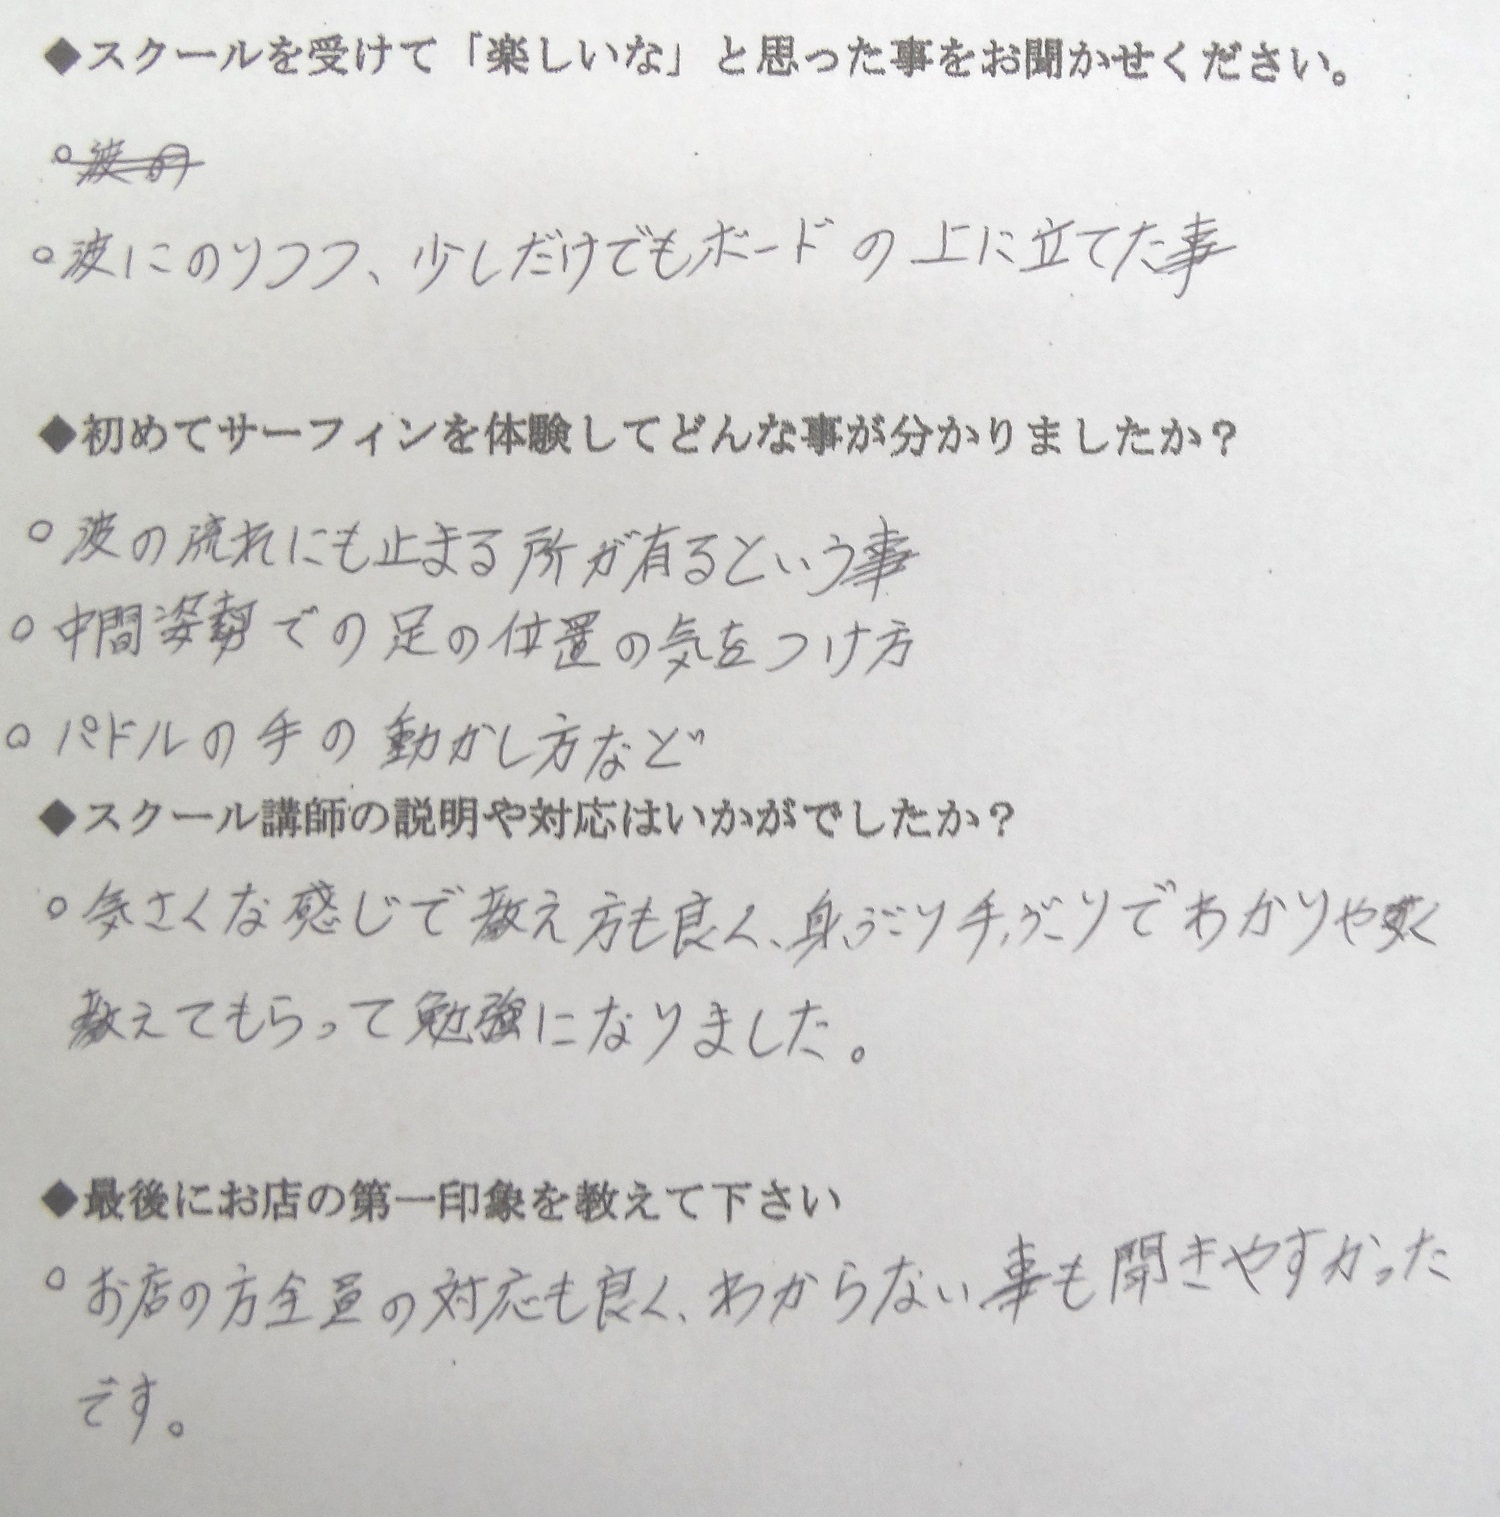 ◆スクールを受けて「楽しいな」と思った事をお聞かせください。
○波の
○波にのりつつ、少しだけでもボードの上に立てた事
◆初めてサーフィンを体験してどんな事が分かりましたか？
○波の流れにも止まる所が有るという事
○中間姿勢での足の位置の気をつけ方
○パドルの手の動かし方など
◆スクール講師の説明や対応はいかがでしたか？
○気さくな感じで教え方も良く、身ぶり手ぶりでわかりやすく
教えてもらって勉強になりました。
◆最後にお店の第一印象を教えて下さい
○お店の方全員の対応も良く、わからない事も聞きやすかった
です。